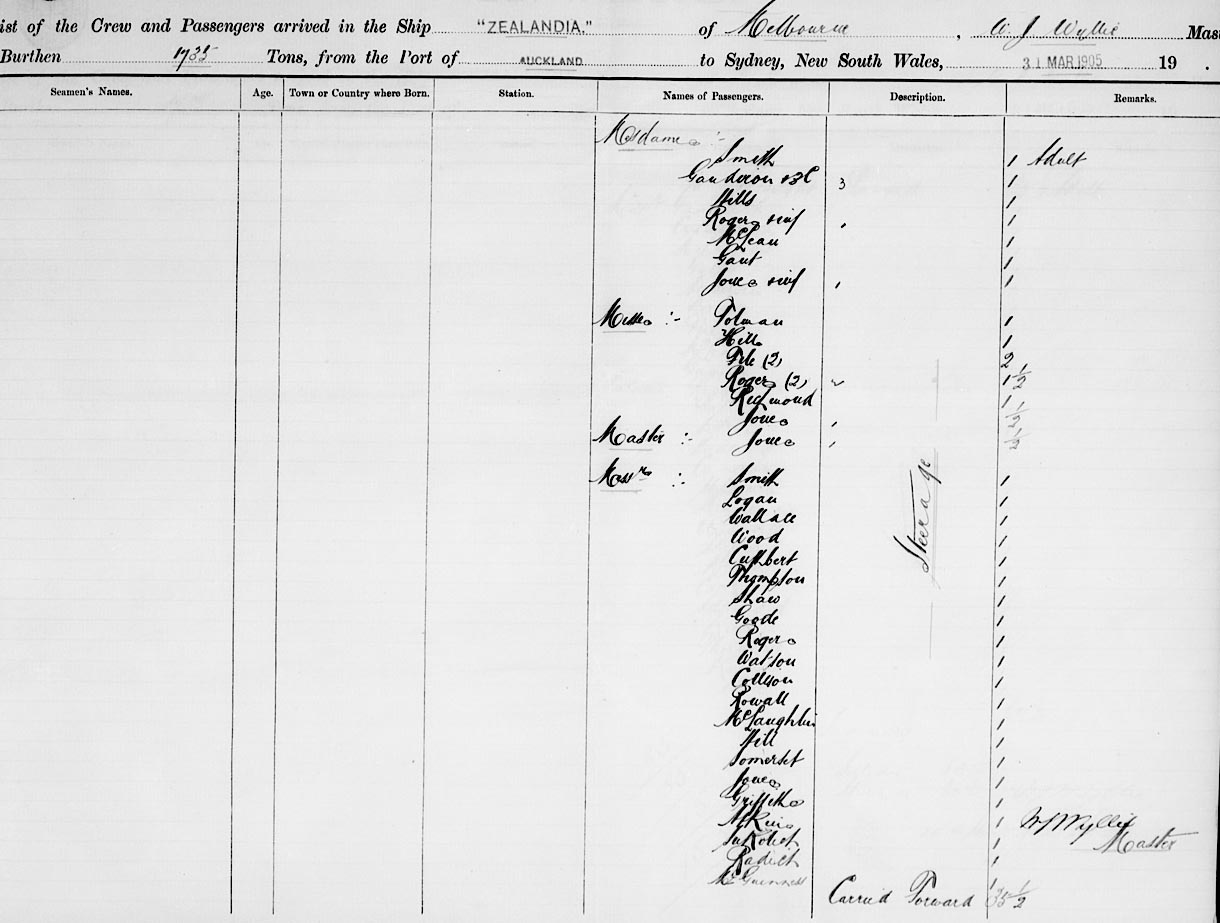 ist of the Crew and Passengers arrived in the Ship "ZEALANDIA." of Melbourne, W. J. Wyllie Mas
Burthen 1735 Tons, from the Port of AUCKLAND to Sydney, New South Wales, 31 MAR 1905 19 .
Seamen's Names. Age. Town or Country where Born. Station. Names of Passengers. Description. Remarks.
Mesdames :-
Smith 1 Adult
& 3 C 3 1
Hills 1
Rogers & inf 1 1
McLean 1
Gant 1
Jones & inf 1
Misses :- Tolman 1
Hills 1
File (2) 2
Rogers (2) 1 1/2
Redmond 1
Jones 1 1/2
Master :- Jones 1 1/2
Messrs :- Smith 1
Logan 1
Wallace 1
Wood 1
Cuthbert 1
Thompson 1
Shaw 1
Goode 1
Rogers 1
Watson 1
Collison 1
Rowall 1
McLaughlin 1
Hill 1
Somerset 1
Jones 1
Griffiths 1
1 W J Wyllie
1 Master
Radich 1
McGuinness 1
Steerage
Carried Forward 35 1/2